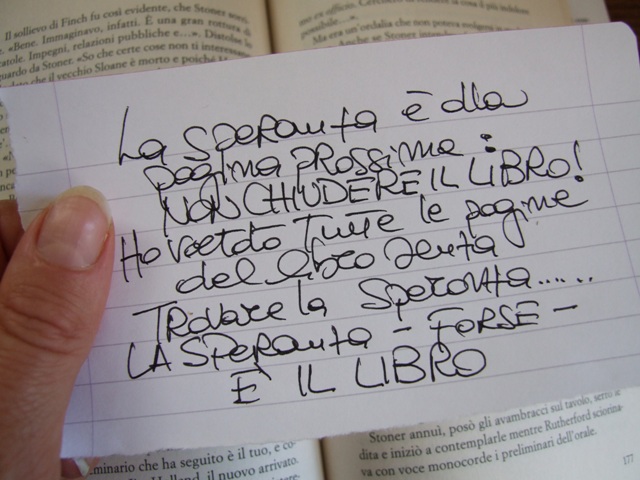 Il sollievo di Finch fu così evidente, che Stoner
«Bene. Immaginavo, infatti. È una gran rottura di
catole. Impegni, relazioni pubbliche e...». Distolse lo
guardo da Stoner. «So che certe cose non ti interessano
che il vecchio Sloane è morto e poiché
mo ex officio.
possibile...».
Ma era un'ordalia che non poteva
Anche se Stoner
La SPERANZA è alla
pagina prossima :
NON CHIUDERE IL LIBRO!
Ho voltato TUTTE le pagine
del libro senza
TROVARE la Speranza......
LA SPERANZA - FORSE -
È IL LIBRO
eminario che ha seguito è il tuo, e co-
il nuovo arrivato.
Stoner annuì, posò gli avambracci sul tavolo,
dita e iniziò a contemplarle mentre Rutherford sciorina-
va con voce monocorde i preliminari dell'orale.
177